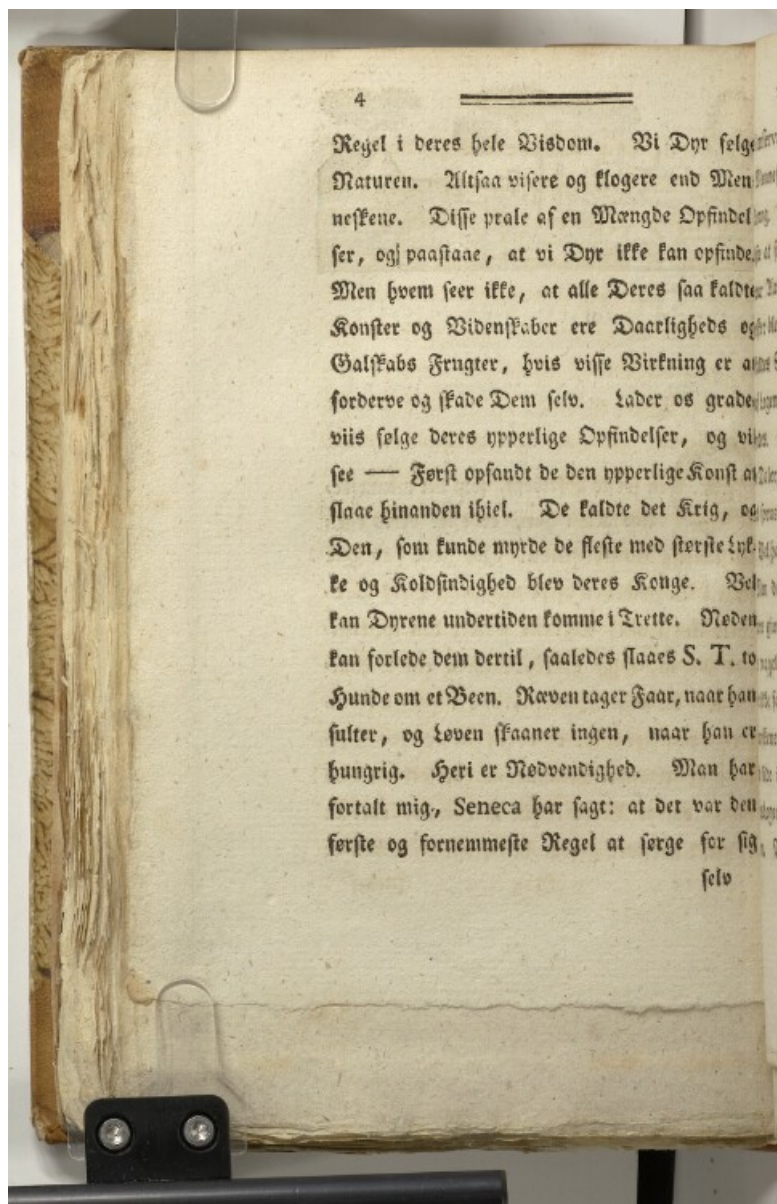 4
Regel i deres hele Visdom. Vi Dyr følge
Naturen. Altsaa visere og klogere end Men
neskene. Disse prale af en Mængde Opfindel
ser, og paastaae, at vi Dyr ikke kan opfinde.
Men hvem seer ikke, at alle Deres saa kaldte
Konster og Videnskaber ere Daarligheds og
Galskabs Frugter, hvis visse Virkning er at
forderve og skade Dem selv. Lader os grade
viis følge deres ypperlige Opfindelser, og vi
see — Først opfandt de den ypperlige Konst at
slaae hinanden ihiel. De kaldte det Krig, og
Den, som kunde myrde de fleste med største Lyk-
ke og Koldsindighed blev deres Konge. Vel
kan Dyrene undertiden komme i Trette. Nøden
kan forlede dem dertil, saaledes slaaes S. T. to
Hunde om et Been. Ræven tager Faar, naar han
sulter, og Løven skaaner ingen, naar han er
hungrig. Heri er Nødvendighed. Man har
fortalt mig, Seneca har sagt: at det var den
første og fornemmeste Regel at sørge for sig
selv